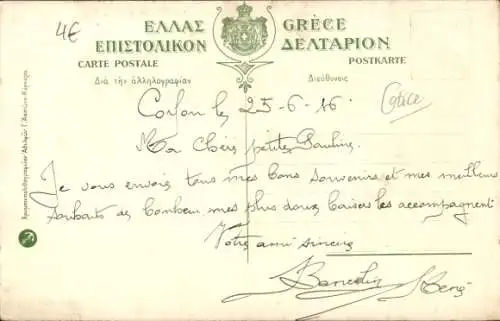 4€
ΕΛΛΑΣ GRÈCE
ΕΠΙΣΤΟΛΙΚΟΝ ΔΕΛΤΑΡΙΟΝ
CARTE POSTALE POSTKARTE
Διὰ τὴν ἀλληλογραφίαν Διεύθυνσις
Corfou le 25-6-16.
Grèce
Ma Chère petite Pauline
Je vous envois tous mes bons souvenirs et mes meilleurs
souhaits de bonheur mes plus doux baisers les accompagnent
Votre ami sincère